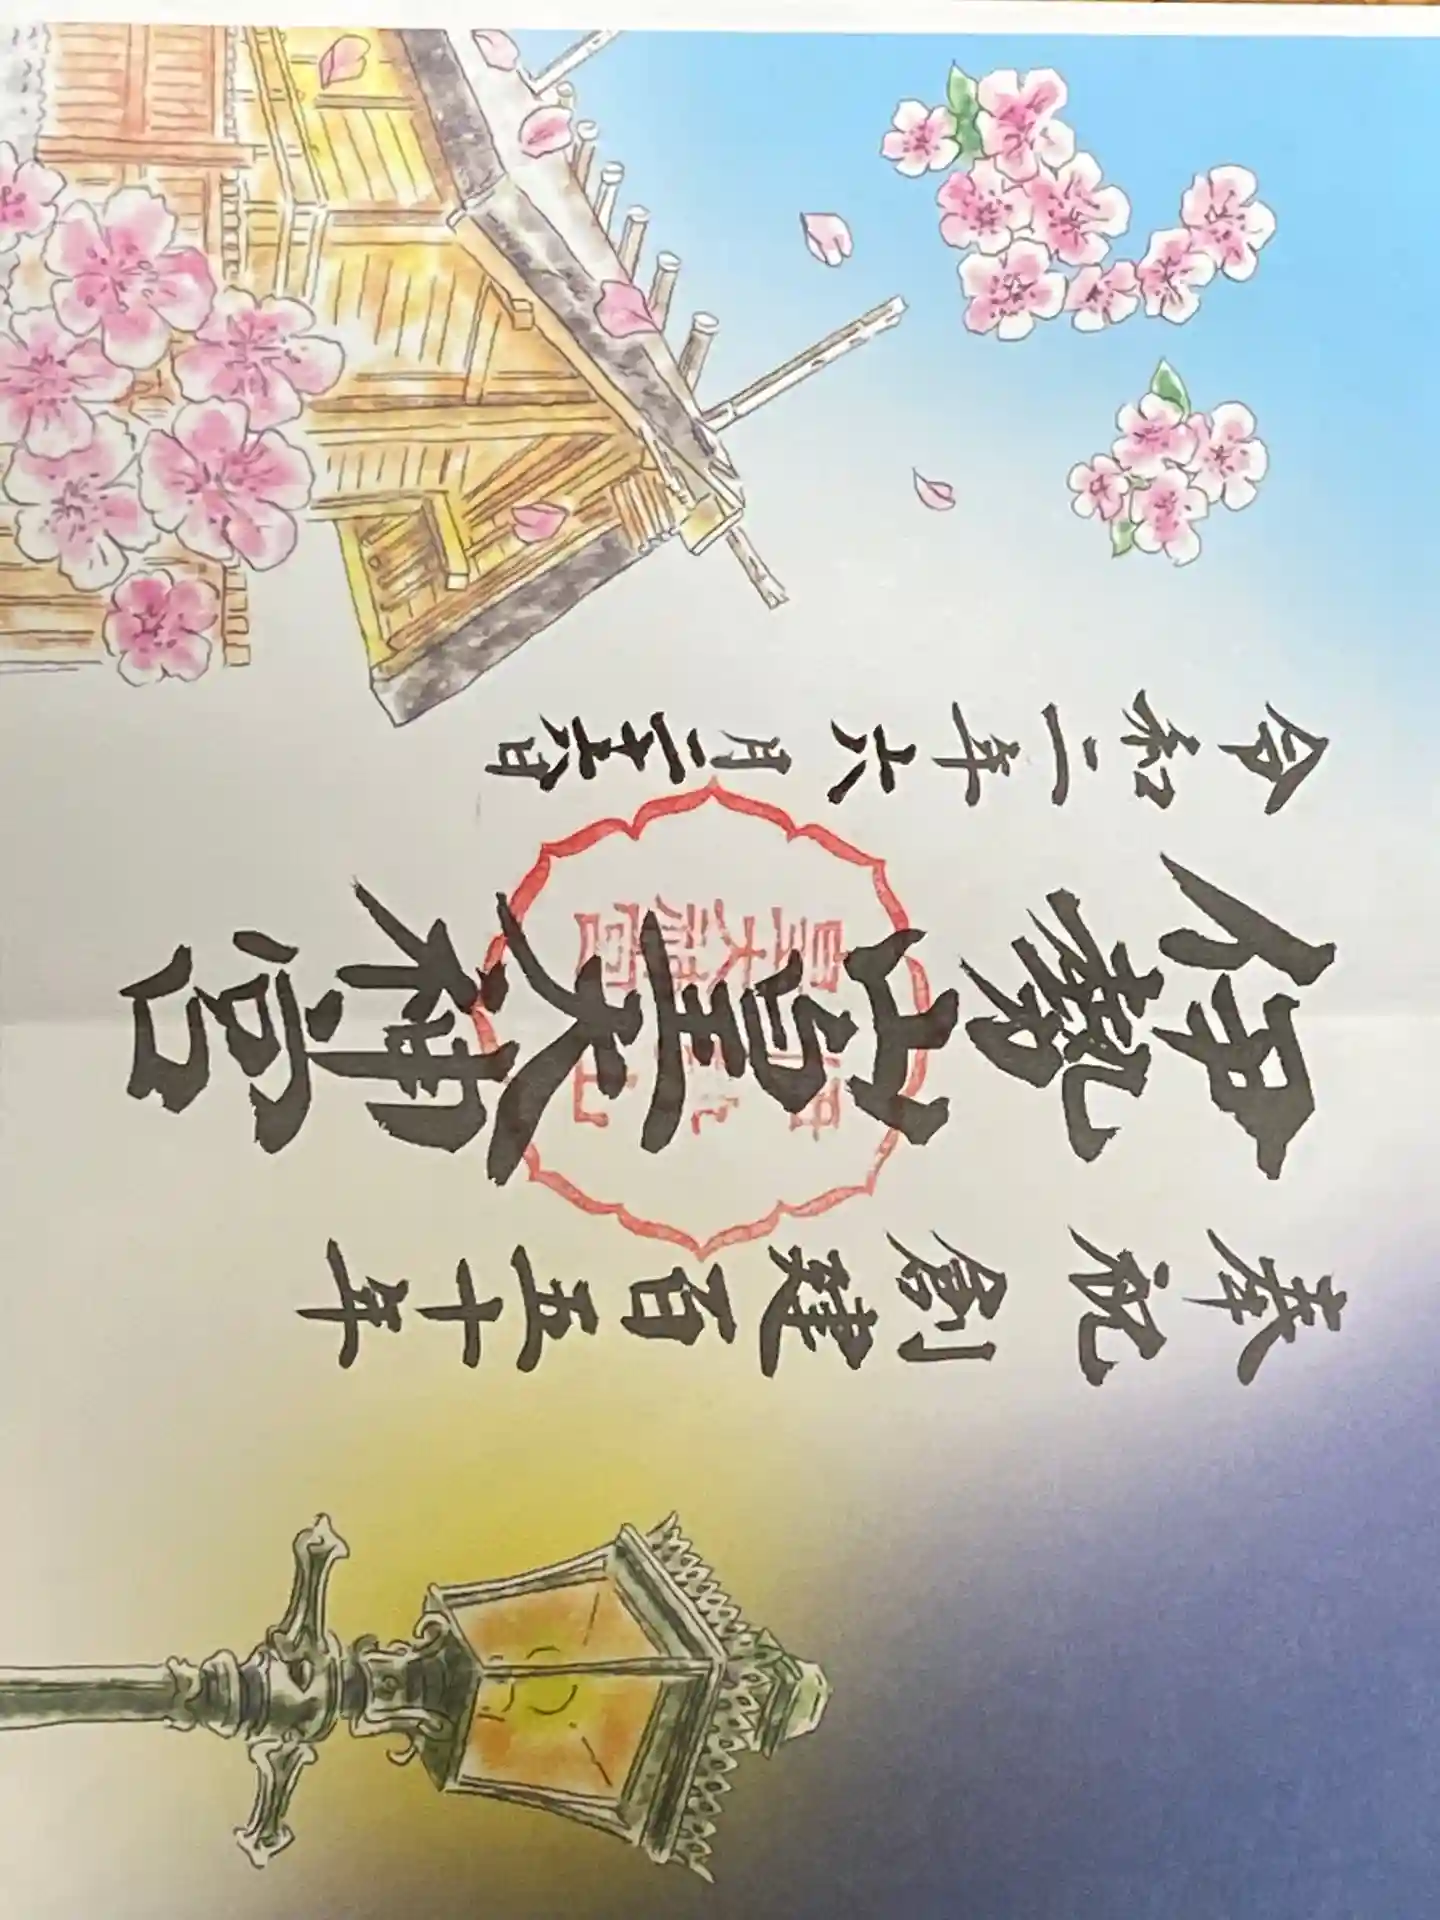 奉祝創建百五十年
伊勢山皇大神宮
令和二年六月二十六日
皇大神宮